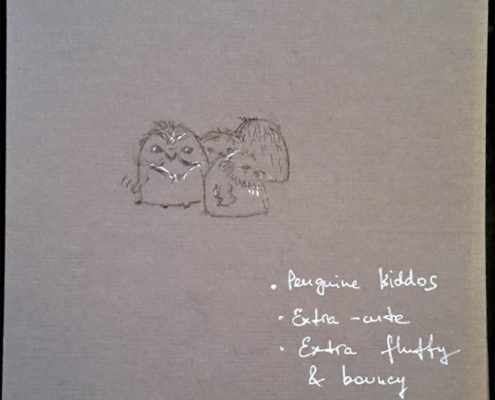 • Penguine kiddos
• Extra-cute
• Extra fluffy
& bouncy